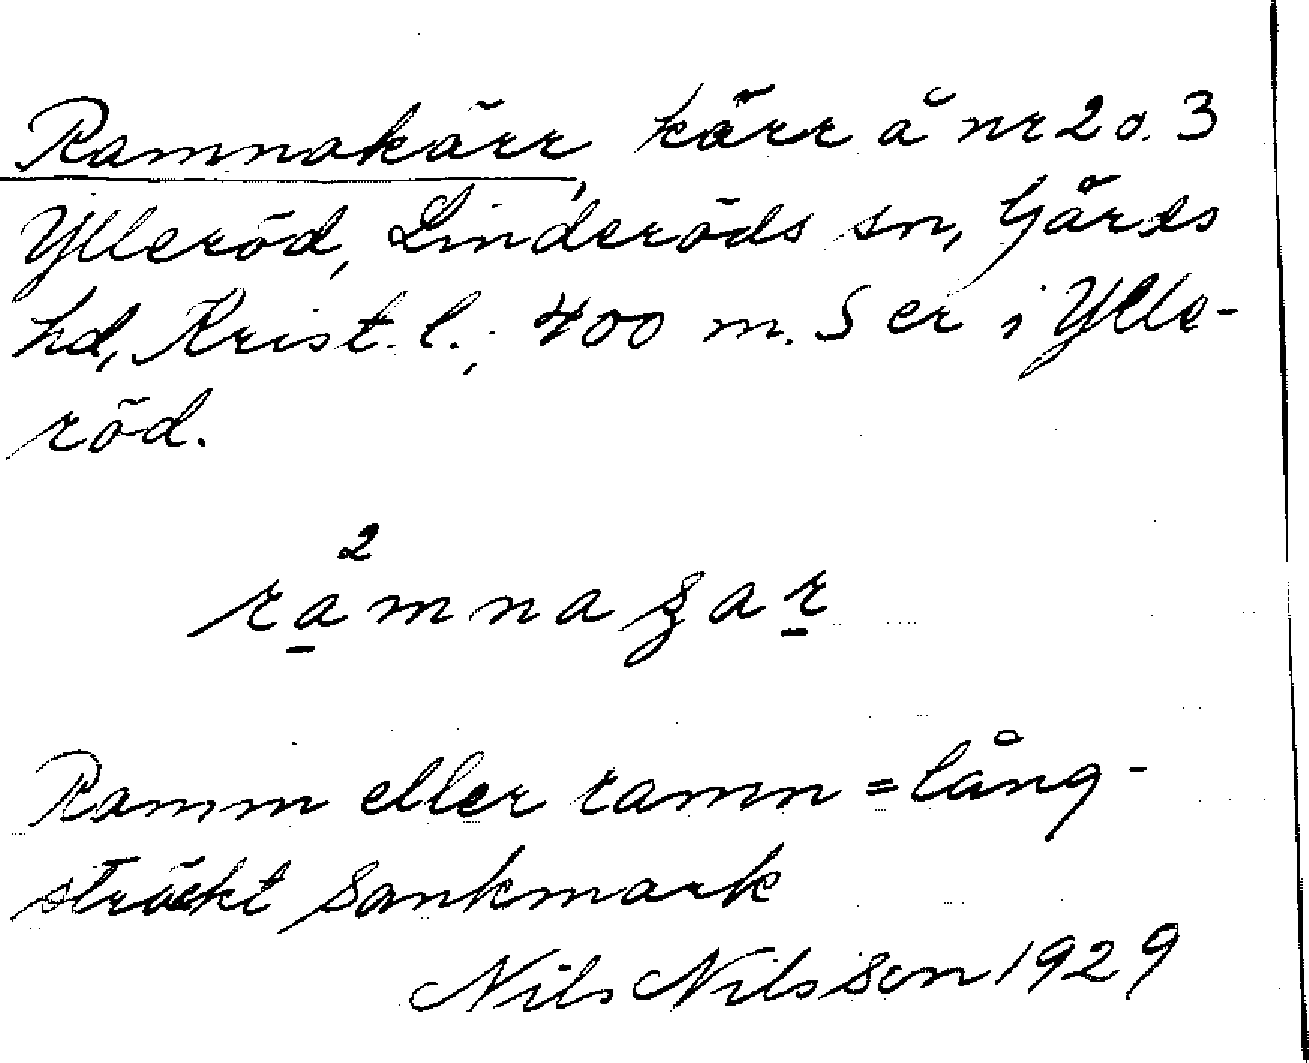 Ramnakärr, kärr å nr 2 o. 3
Ylleröd, Linderöds sn, Gärds
hd, Krist. l.; 400 m. S er i Ylle-
röd.
2
ramnagar
Ramm eller ramn = lång-
sträckt sankmark
Nils Nilsson 1929